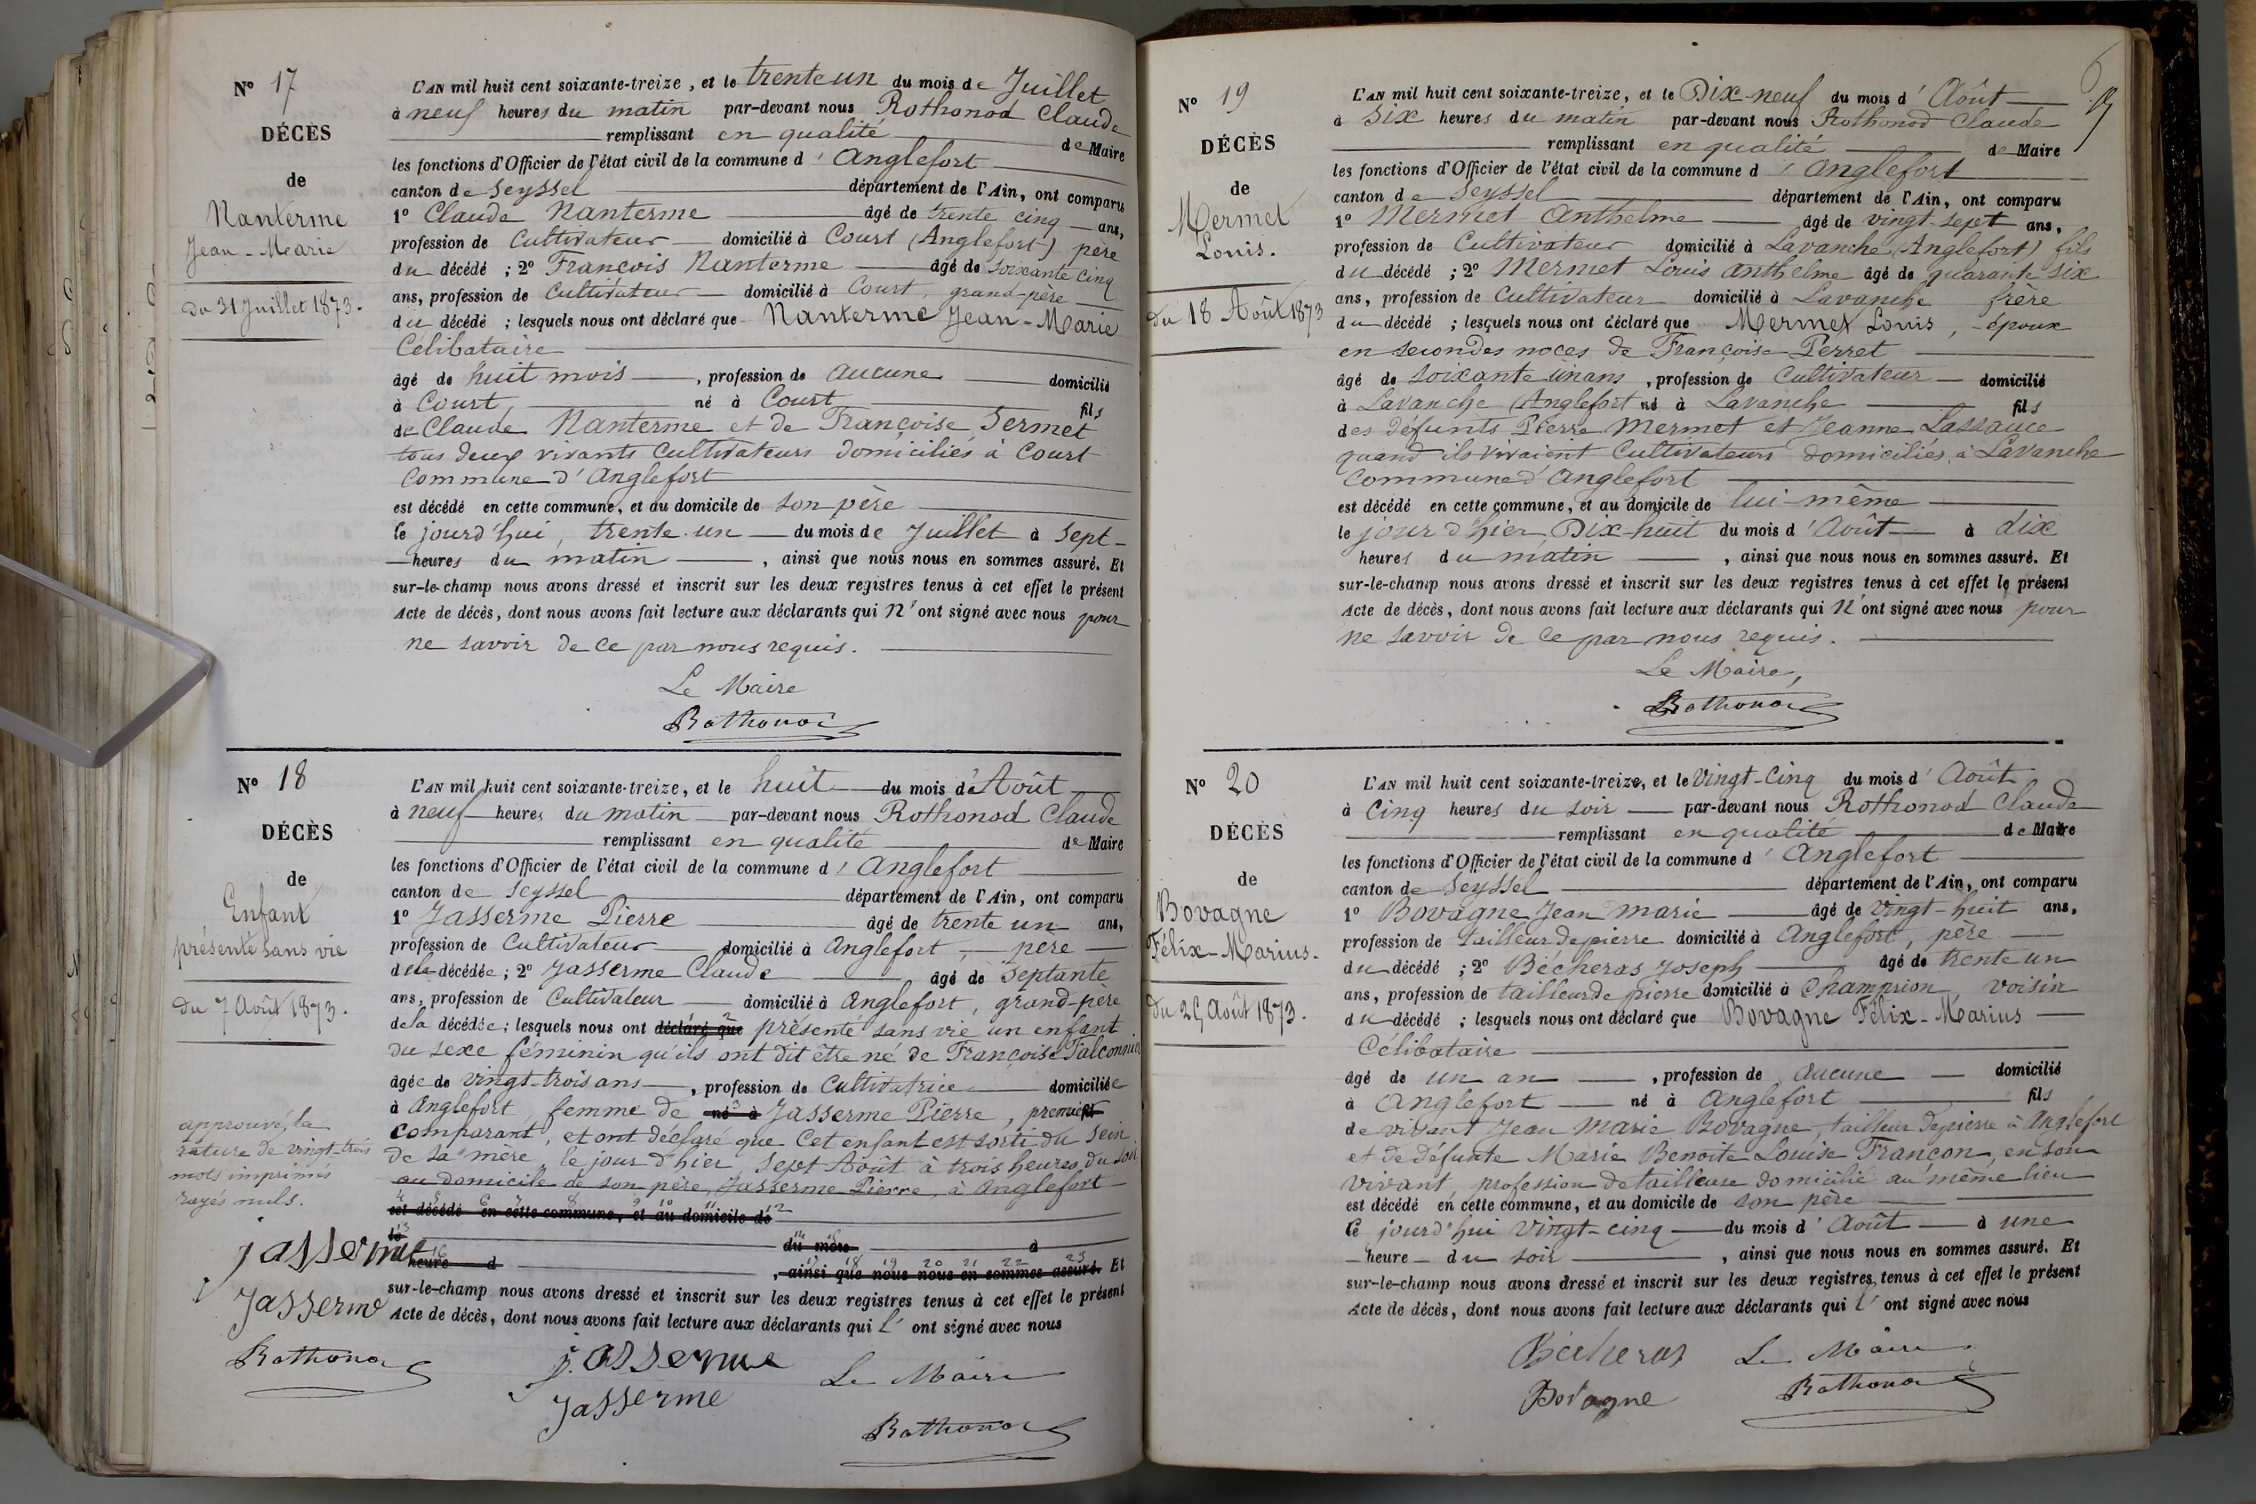 N° 17
DÉCÈS
de
Nanterme
Jean-Marie
du 31 Juillet 1873.
L'AN mil huit cent soixante-treize, et le trente un du mois de Juillet
à neuf heures du matin par-devant nous Rothonod Claude
remplissant en qualité de Maire
les fonctions d'Officier de l'état civil de la commune d'Anglefort
canton de Seyssel département de l'Ain, ont comparu
1° Claude Nanterme âgé de trente cinq ans,
profession de Cultivateur domicilié à Court (Anglefort) père
du décédé ; 2° François Nanterme âgé de soixante cinq
ans, profession de Cultivateur domicilié à Court, grand-père
du décédé ; lesquels nous ont déclaré que Nanterme Jean-Marie
Célibataire
âgé de huit mois, profession de aucune domicilié
à Court, né à Court fils
de Claude Nanterme et de Françoise Sermet
tous deux vivants Cultivateurs domiciliés à Court
Commune d'Anglefort
est décédé en cette commune, et au domicile de son père
le jourd'hui, trente-un du mois de Juillet à sept
heures du matin, ainsi que nous nous en sommes assuré. Et
sur-le-champ nous avons dressé et inscrit sur les deux registres tenus à cet effet le présent
Acte de décès, dont nous avons fait lecture aux déclarants qui n'ont signé avec nous pour
ne savoir de ce par nous requis.
Le Maire
Rothonod
N° 18
DÉCÈS
de
Enfant
présenté sans vie
du 7 Août 1873.
L'AN mil huit cent soixante-treize, et le huit du mois d'Août
à neuf heures du matin par-devant nous Rothonod Claude
remplissant en qualité de Maire
les fonctions d'Officier de l'état civil de la commune d'Anglefort
canton de Seyssel département de l'Ain, ont comparu
1° Jasserme Pierre âgé de trente un ans,
profession de Cultivateur domicilié à Anglefort, père
de la décédée ; 2° Jasserme Claude, âgé de septante
ans, profession de Cultivateur domicilié à Anglefort, grand-père
de la décédée ; lesquels nous ont déclaré que présenté sans vie un enfant
du sexe féminin qu'ils ont dit être né de Françoise Falconnier
âgée de vingt-trois ans, profession de Cultivatrice domiciliée
à Anglefort, femme de né à Jasserme Pierre, premier
comparant, et ont déclaré que cet enfant est sorti du sein
de sa mère, le jour d'hier, sept Août à trois heures du soir
au domicile de son père, Jasserme Pierre, à Anglefort
est décédé en cette commune, et au domicile de
le du mois à
heure d, ainsi que nous nous en sommes assuré. Et
sur-le-champ nous avons dressé et inscrit sur les deux registres tenus à cet effet le présent
Acte de décès, dont nous avons fait lecture aux déclarants qui l'ont signé avec nous
approuvé, la
rature de vingt-trois
mots imprimés
rayés nuls.
jasserme
Jasserme
Rothonod
j. asserme
Jasserme
Le Maire
Rothonod
N° 19
DÉCÈS
de
Mermet
Louis.
du 18 Août 1873
L'AN mil huit cent soixante-treize, et le Dix-neuf du mois d'Août
à Six heures du matin par-devant nous Rothonod Claude
remplissant en qualité de Maire
les fonctions d'Officier de l'état civil de la commune d'Anglefort
canton de Seyssel département de l'Ain, ont comparu
1° Mermet Anthelme âgé de vingt-sept ans,
profession de Cultivateur domicilié à Lavanche (Anglefort) fils
du décédé ; 2° Mermet Louis Anthelme âgé de quarante six
ans, profession de Cultivateur domicilié à Lavanche frère
du décédé ; lesquels nous ont déclaré que Mermet Louis, époux
en secondes noces de Françoise Perret
âgé de soixante un ans, profession de Cultivateur domicilié
à Lavanche (Anglefort né à Lavanche fils
des défunts Pierre Mermet et Jeanne Lassauce
quand ils vivaient Cultivateurs domiciliés à Lavanche
Commune d'Anglefort
est décédé en cette commune, et au domicile de lui-même
le jour d'hier Dix-huit du mois d'Août à dix
heures du matin, ainsi que nous nous en sommes assuré. Et
sur-le-champ nous avons dressé et inscrit sur les deux registres tenus à cet effet le présent
Acte de décès, dont nous avons fait lecture aux déclarants qui n'ont signé avec nous pour
ne savoir de ce par nous requis.
Le Maire,
Rothonod
N° 20
DÉCÈS
de
Bovagne
Félix-Marius.
du 25 Août 1873.
L'AN mil huit cent soixante-treize, et le Vingt-Cinq du mois d'Août
à Cinq heures du soir par-devant nous Rothonod Claude
remplissant en qualité de Maire
les fonctions d'Officier de l'état civil de la commune d'Anglefort
canton de Seyssel département de l'Ain, ont comparu
1° Bovagne Jean Marie âgé de Vingt-huit ans,
profession de tailleur de pierre domicilié à Anglefort, père
du décédé ; 2° Bécheras Joseph âgé de trente un
ans, profession de tailleur de pierre domicilié à Champrion, voisin
du décédé ; lesquels nous ont déclaré que Bovagne Félix-Marius
Célibataire
âgé de un an, profession de Aucune domicilié
à Anglefort né à Anglefort fils
de vivant Jean Marie Bovagne, tailleur de pierre à Anglefort
et de défunte Marie Benoite Louise Françon, en son
vivant, profession de tailleuse domicilié au même lieu
est décédé en cette commune, et au domicile de son père
le jourd'hui Vingt-cinq du mois d'Août à une
heure du soir, ainsi que nous nous en sommes assuré. Et
sur-le-champ nous avons dressé et inscrit sur les deux registres tenus à cet effet le présent
Acte de décès, dont nous avons fait lecture aux déclarants qui l'ont signé avec nous
Bécheras Le Maire
Bovagne Rothonod